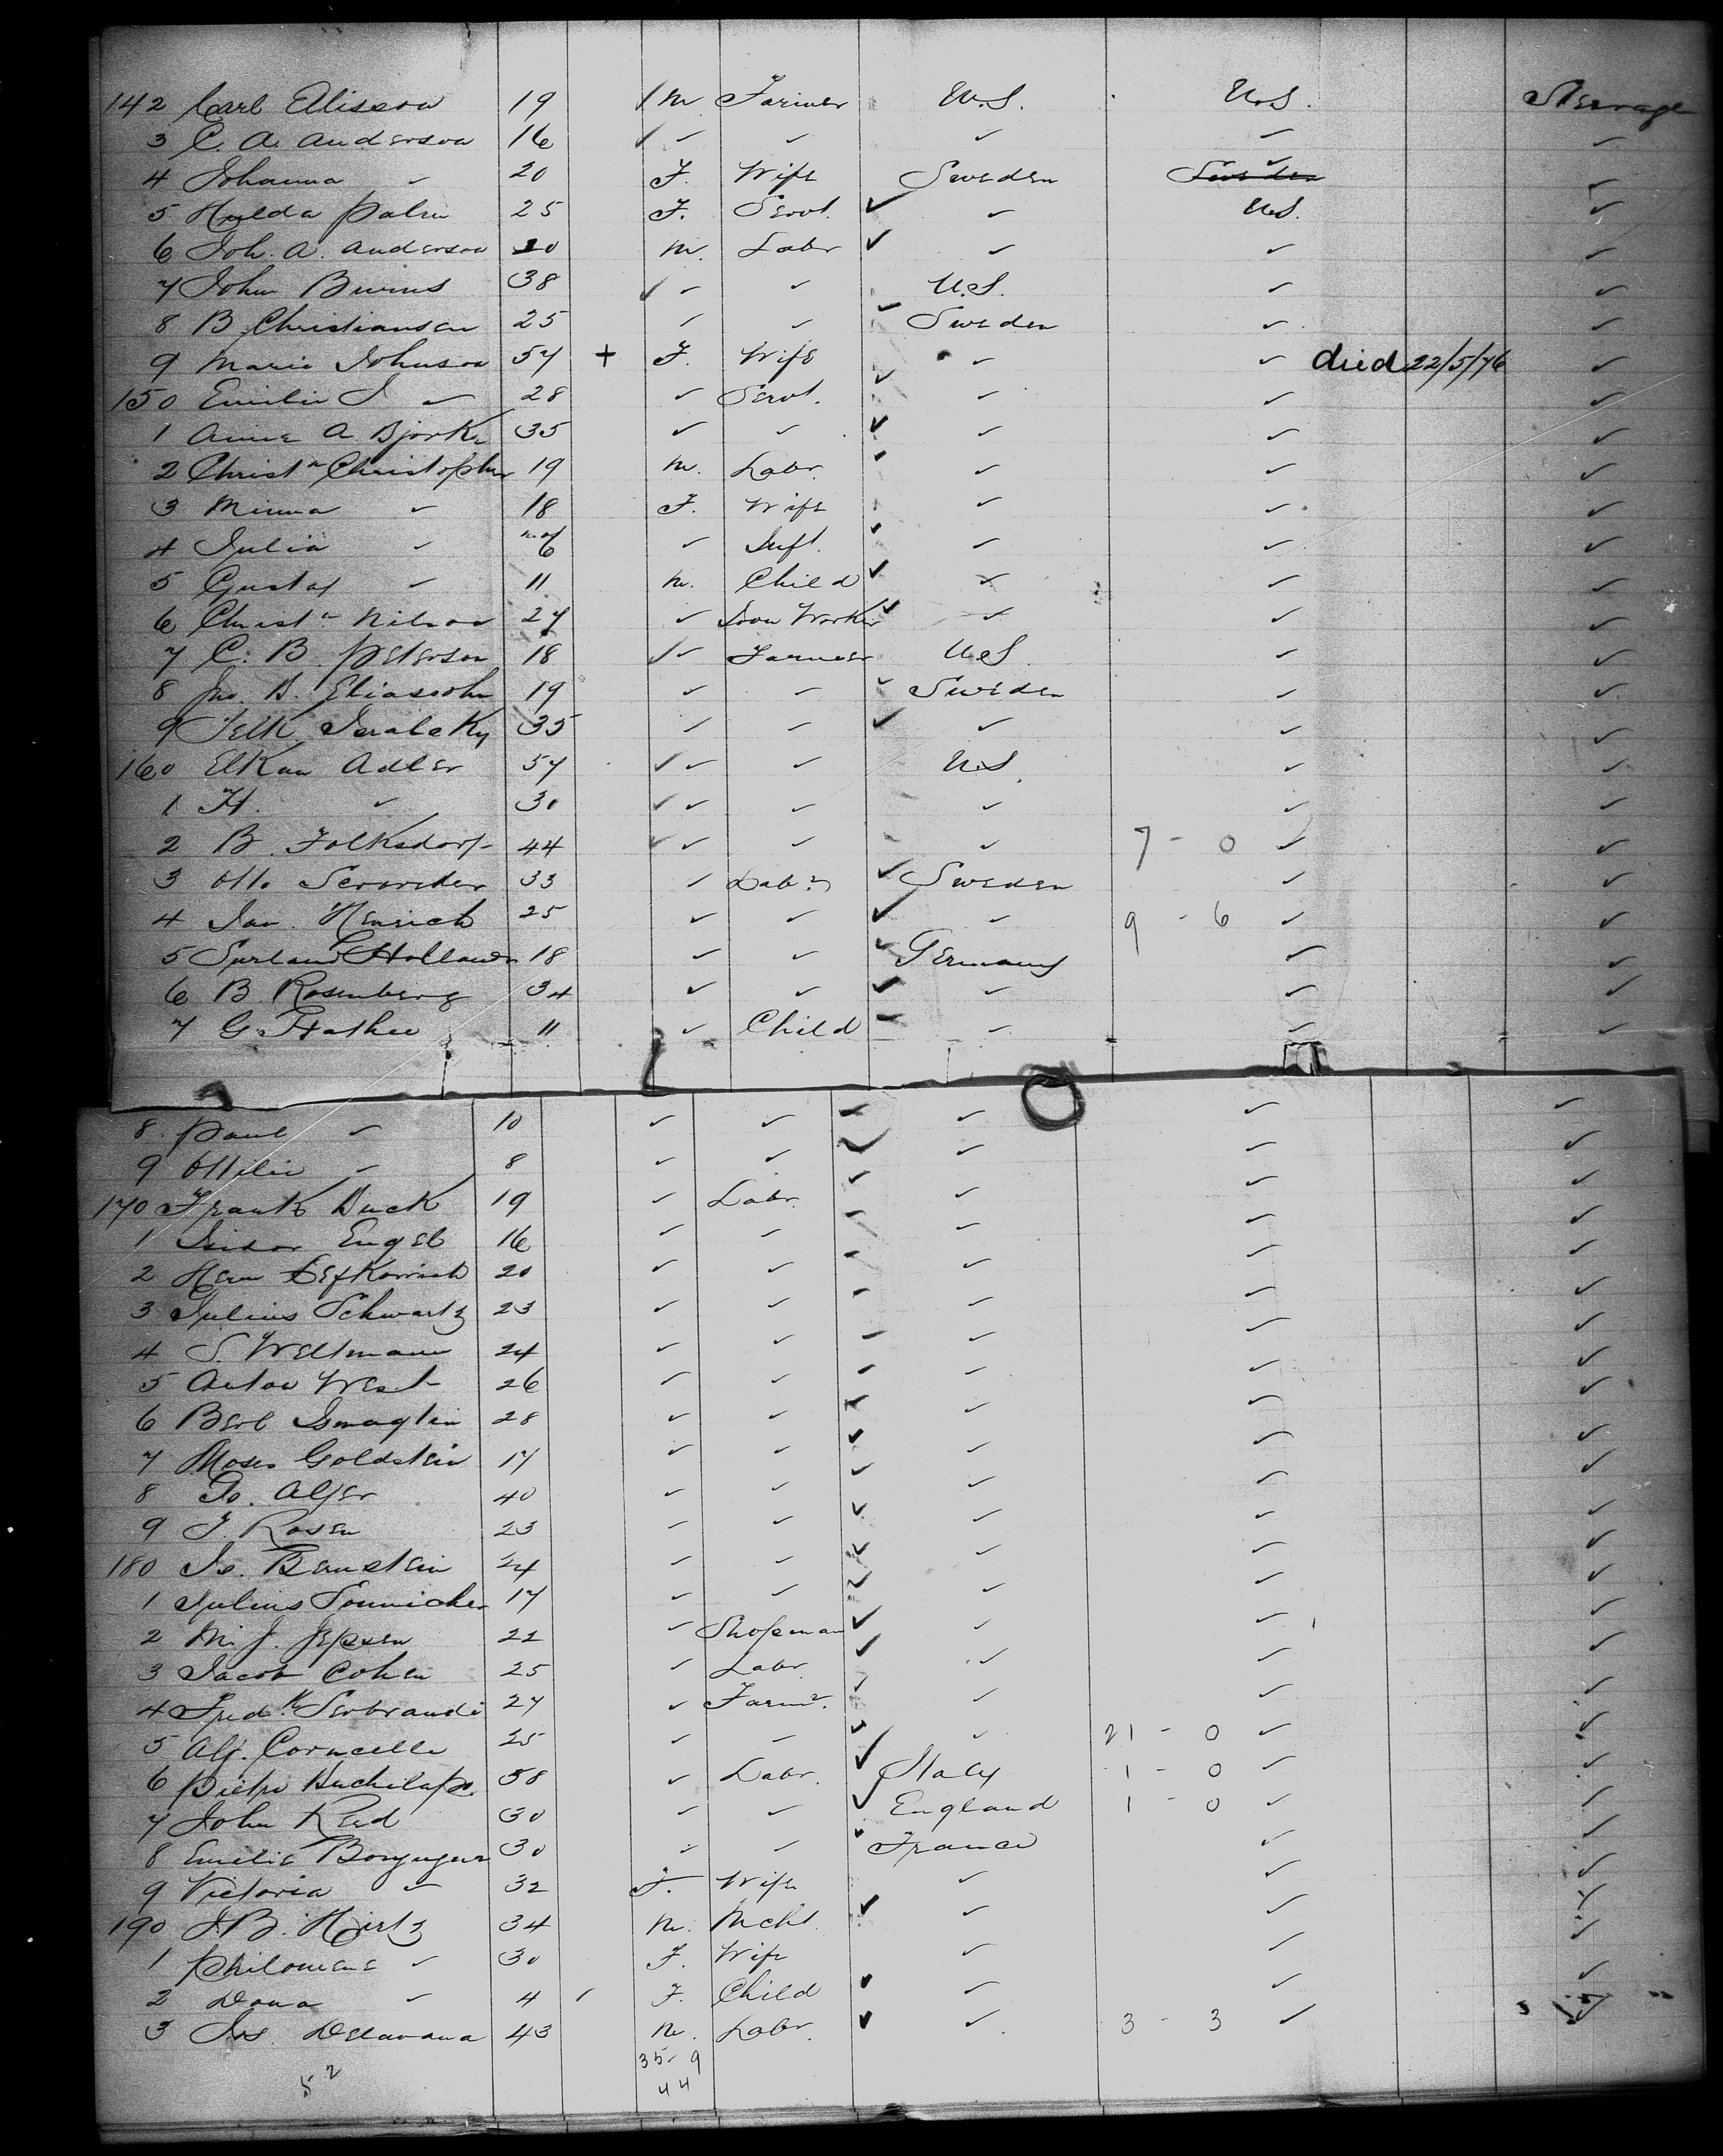 142 Carl Elisson 19 m Farmer U.S. U.S. Steerage
3 C. A. Anderson 16 " " " " "
4 Johanna " 20 F. Wife Sweden " "
5 Hulda Palm 25 F. Servt. " U.S. "
6 Joh. A. Anderson 20 m. Labr " " "
7 John Burns 38 " " U.S. " "
8 B. Christiansen 25 " " Sweden " "
9 Maria Johnson 57 + F. Wife " " died 22/5/76 "
150 Emilie J " 28 " Servt. " " "
1 Anna A Bjork 35 " " " " "
2 Christn Christopher 19 m. Labr. " " "
3 Minna " 18 F. Wife " " "
4 Julia " mos 6 " Inft. " " "
5 Gustaf " 11 m. Child " " "
6 Christn Nilson 27 " Iron Worker " " "
7 C. B. Peterson 18 " Farmer U.S. " "
8 Jno. B. Eliassohn 19 " " Sweden " "
9 35 " " " " "
160 Elkan Adler 57 " " U.S. " "
1 H. " 30 " " " " "
2 B. Folksdorf 44 " " " 7 - 0 " "
3 Otto 33 " Labr Sweden " "
4 Jan. Henrich 25 " " " 9 - 6 " "
5 18 " " Germany " "
6 B. Rosenberg 34 " " " " "
7 G. 11 " Child " " "
8 Paul " 10 " " " " "
9 Ottilie " 8 " " " " "
170 Frank Buck 19 " Labr. " " "
1 Isidor Engel 16 " " " " "
2 Herm Lefkowich 20 " " " " "
3 Julius Schwartz 23 " " " " "
4 S. Weltmann 24 " " " " "
5 Anton West 26 " " " " "
6 Berl 28 " " " " "
7 Moses Goldstein 17 " " " " "
8 Alfer 40 " " " " "
9 J. Rosen 23 " " " " "
180 Is. Bernstein 24 " " " " "
1 Julius 17 " " " " "
2 M. J. Jepsen 22 " Shopman " " "
3 Jacob Cohen 25 " Labr " " "
4 Fredk 27 " Farmr. " " "
5 Alf. 25 " " " 21 - 0 " "
6 58 " Labr. Italy 1 - 0 " "
7 John Reid 30 " " England 1 - 0 " "
8 Emilie 30 " " France " "
9 Victoria " 32 F. Wife " " "
190 J. B. Hirtz 34 m. Mcht. " " "
1 Philomene " 30 F. Wife " " "
2 Dona " 4 F. Child " " "
3 Delavana 43 m. Labr. " 3 - 3 " "
35 - 9
52 44